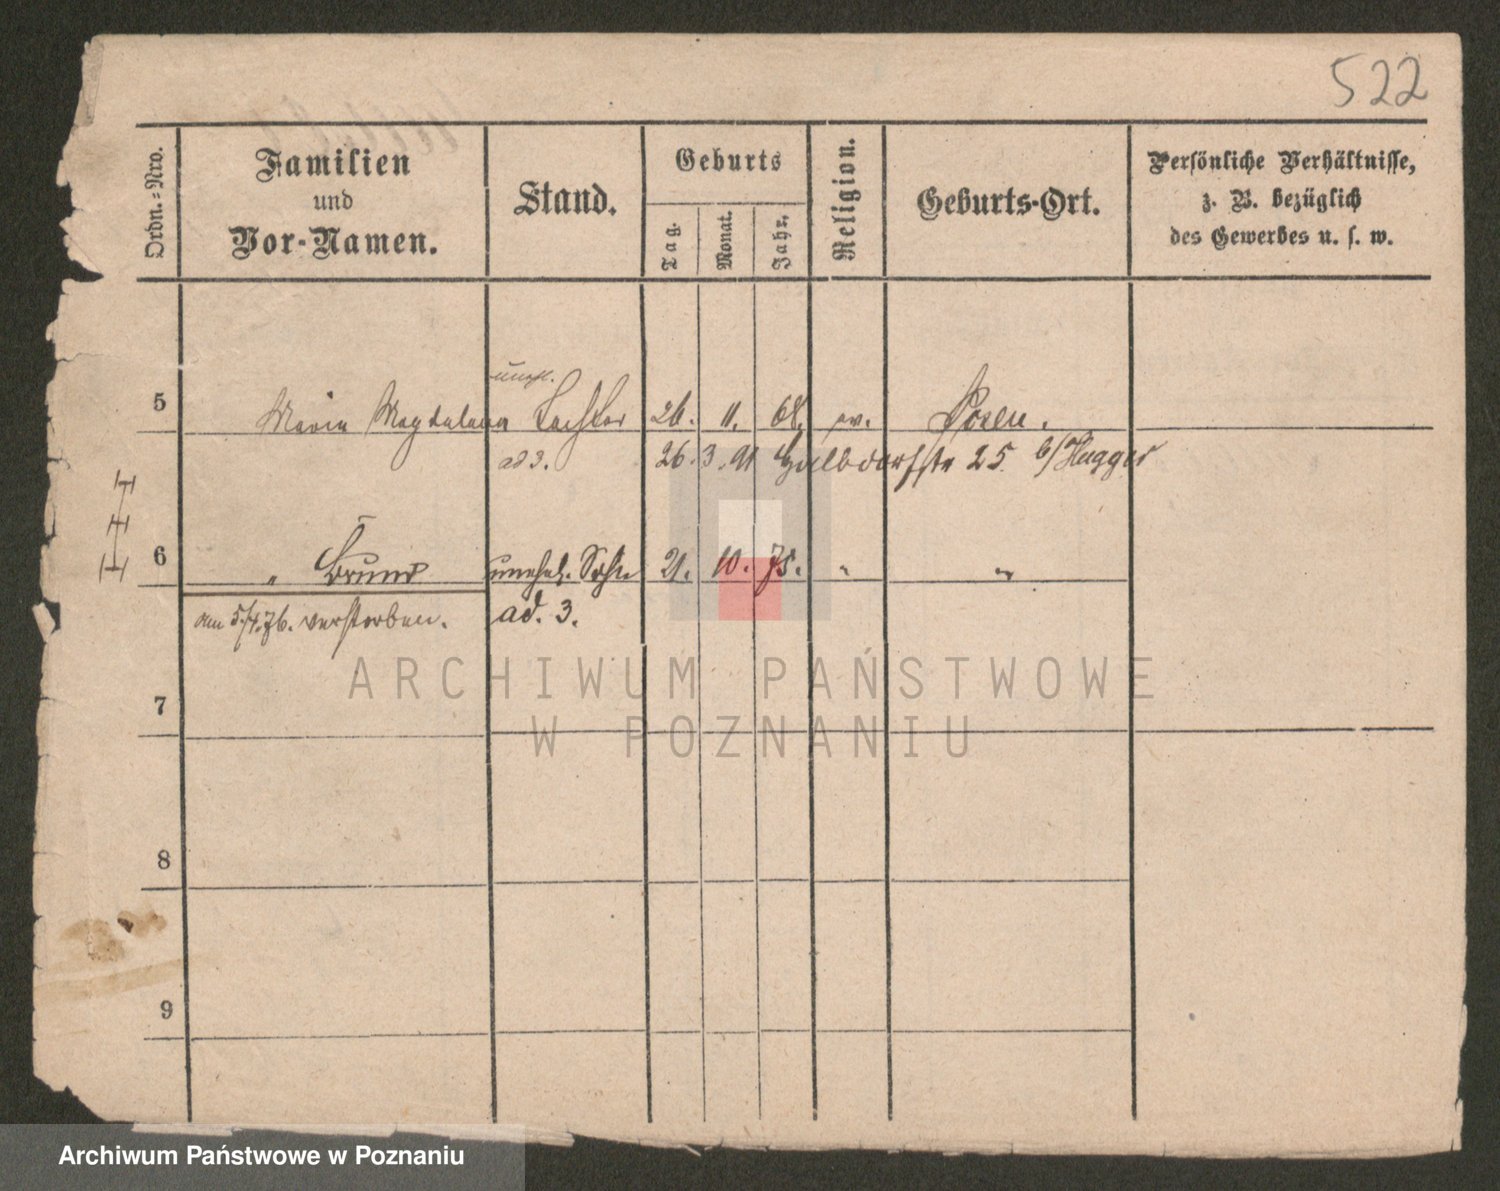 522
Ordn.-Nro.
Familien
und
Vor-Namen.
Stand.
Geburts
Tag.
Monat.
Jahr.
Religion.
Geburts-Ort.
Persönliche Verhältnisse,
z. B. bezüglich
des Gewerbes u. s. w.
unehl.
5 Maria Magdalena Tochter 26. 11. 68. ev. Posen.
ad 3. 26. 3. 91 Halbdorfstr 25. b/Hugger
6 " Bruno unehel. Sohn 21. 10. 75. " "
am 5/4.76. verstorben. ad. 3.
7
8
9
ARCHIWUM PAŃSTWOWE
W POZNANIU
Archiwum Państwowe w Poznaniu